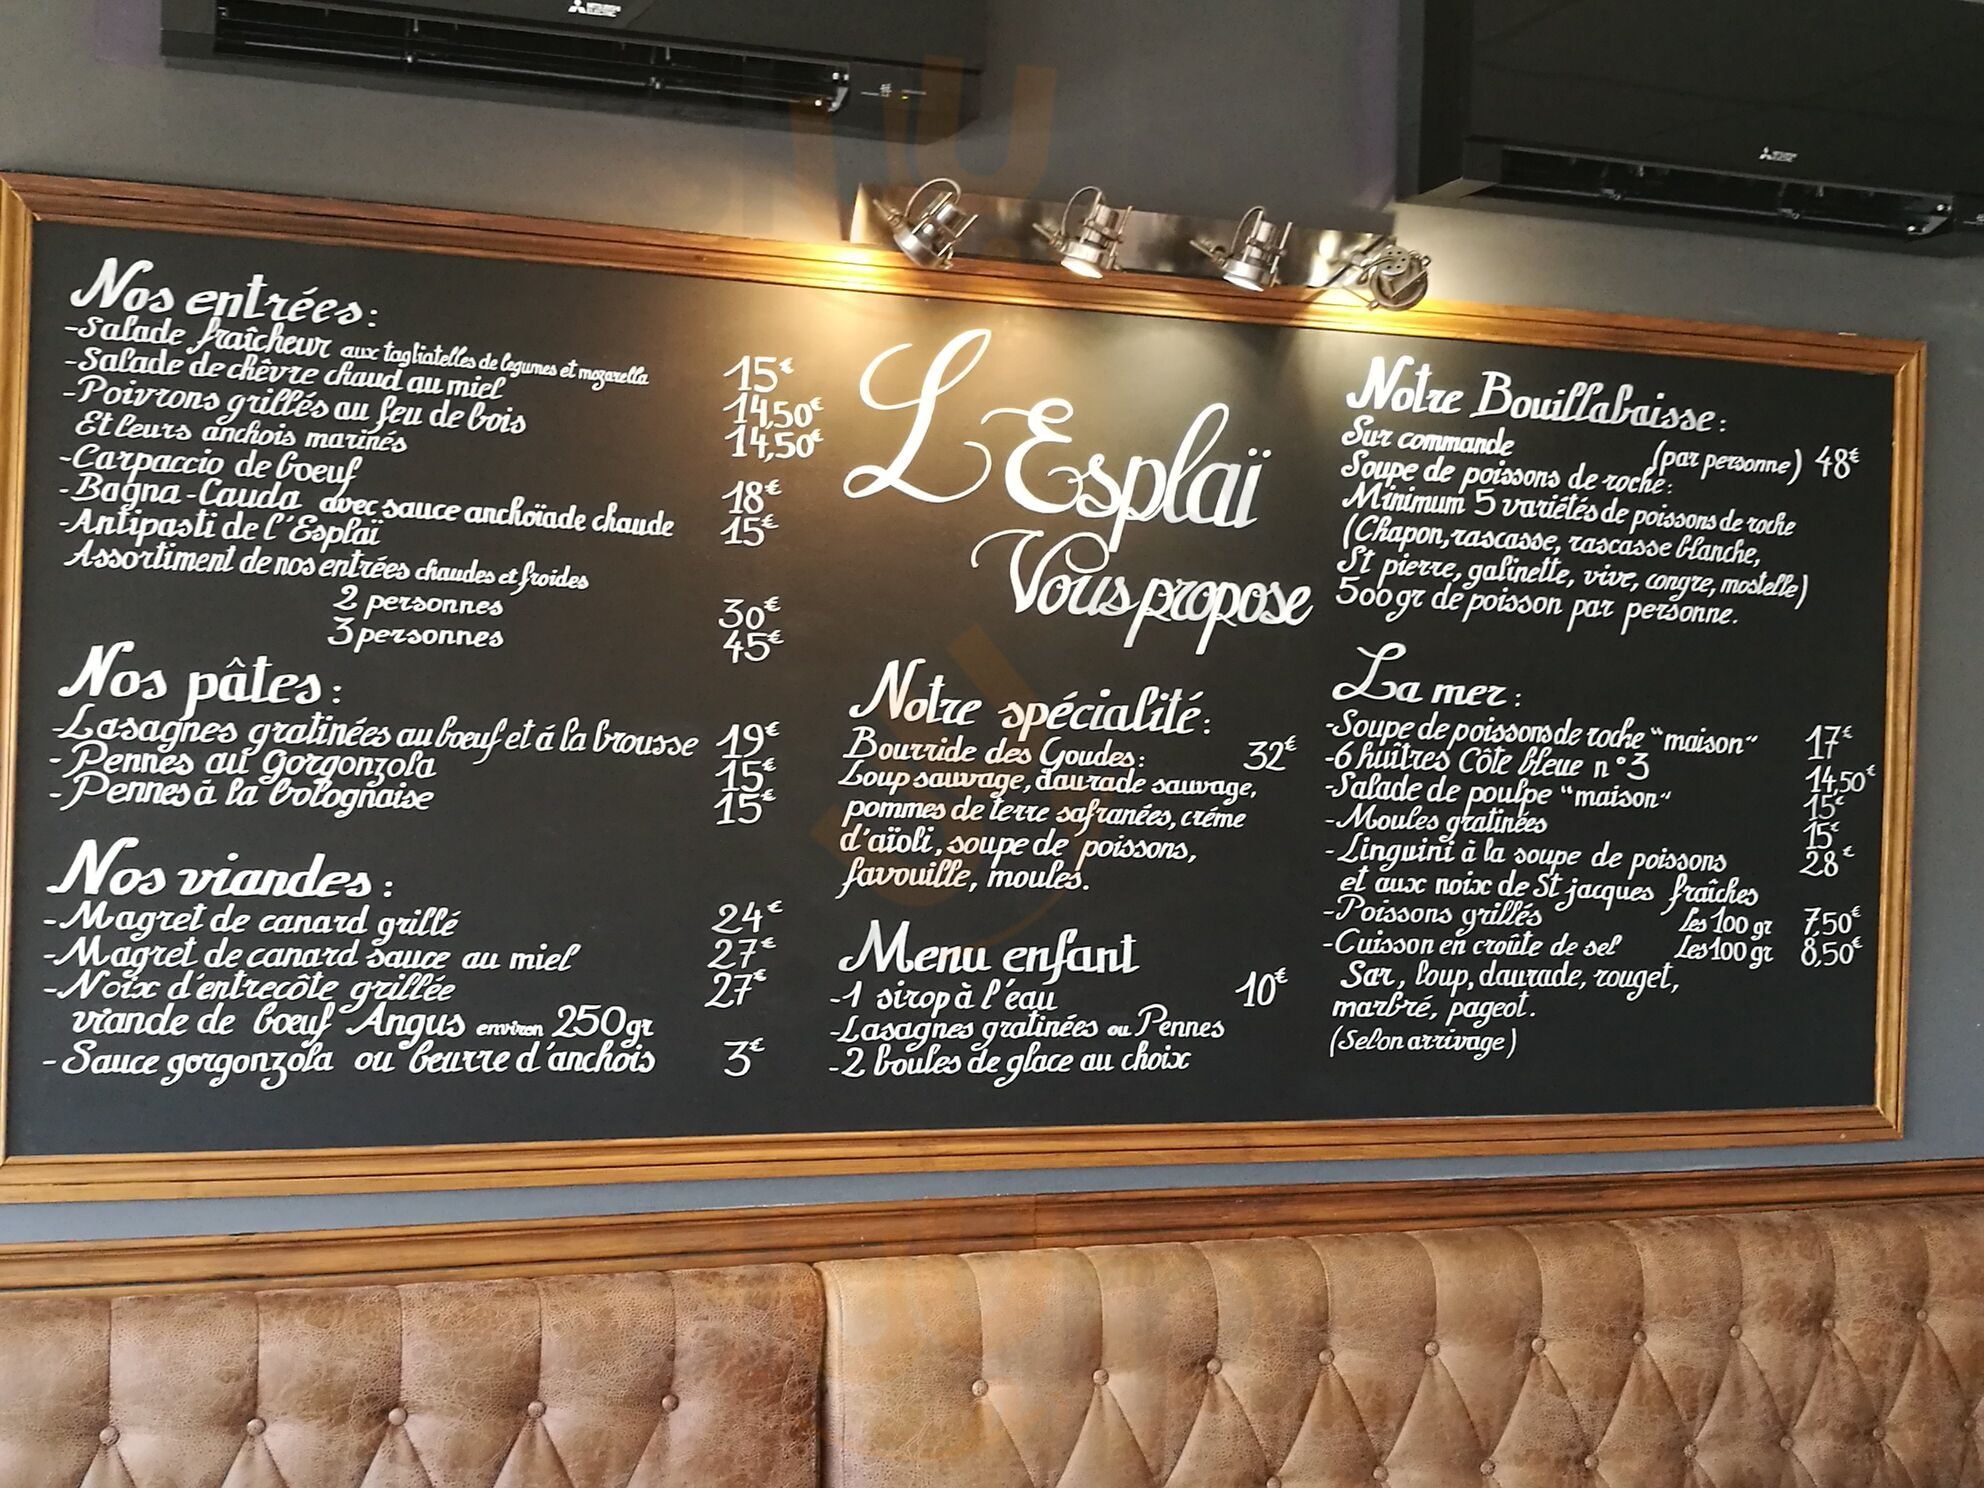 MITSUBISHI ELECTRIC
MITSUBISHI ELECTRIC
Nos entrées :
-Salade fraîcheur aux tagliatelles de legumes et mozarella 15€
-Salade de chêvre chaud au miel 14,50€
-Poivrons grillés au feu de bois 14,50€
Et leurs anchois marinés
-Carpaccio de boeuf 18€
-Bagna-Cauda avec sauce anchoïade chaude 15€
-Antipasti de l'Esplaï
Assortiment de nos entrées chaudes et froides
2 personnes 30€
3 personnes 45€
Nos pâtes :
-Lasagnes gratinées au bœuf et á la brousse 19€
-Pennes au Gorgonzola 15€
-Pennes à la bolognaise 15€
Nos viandes :
-Magret de canard grillé 24€
-Magret de canard sauce au miel 27€
-Noix d'entrecôte grillée 27€
viande de bœuf Angus environ 250gr
-Sauce gorgonzola ou beurre d'anchois 3€
L'Esplaï
Vous propose
Notre spécialité :
Bourride des Goudes : 32€
Loup sauvage, daurade sauvage,
pommes de terre safranées, créme
d'aïoli, soupe de poissons,
favouille, moules.
Menu enfant 10€
-1 sirop à l'eau
-Lasagnes gratinées ou Pennes
-2 boules de glace au choix
Notre Bouillabaisse :
Sur commande (par personne) 48€
Soupe de poissons de roche :
Minimum 5 variétés de poissons de roche
(Chapon, rascasse, rascasse blanche,
St pierre, galinette, vive, congre, mostelle)
500gr de poisson par personne.
La mer :
-Soupe de poissons de roche "maison" 17€
-6 huîtres Côte bleue n°3 14,50€
-Salade de poulpe "maison" 15€
-Moules gratinées 15€
-Linguini à la soupe de poissons 28€
et aux noix de St jacques fraîches
-Poissons grillés Les 100 gr 7,50€
-Cuisson en croûte de sel Les 100 gr 8,50€
Sar, loup, daurade, rouget,
marbré, pageot.
(Selon arrivage)